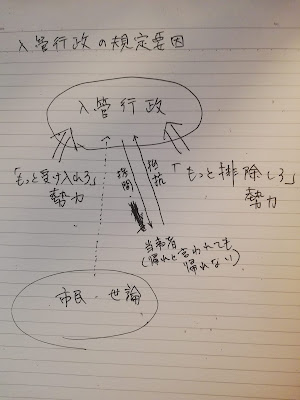 入管行政の規定要因
入管行政
「もっと受け入れろ」
勢力
拷問
抵抗
「もっと排除しろ」
勢力
当事者
(帰れと言われても
帰れない)
市民・世論